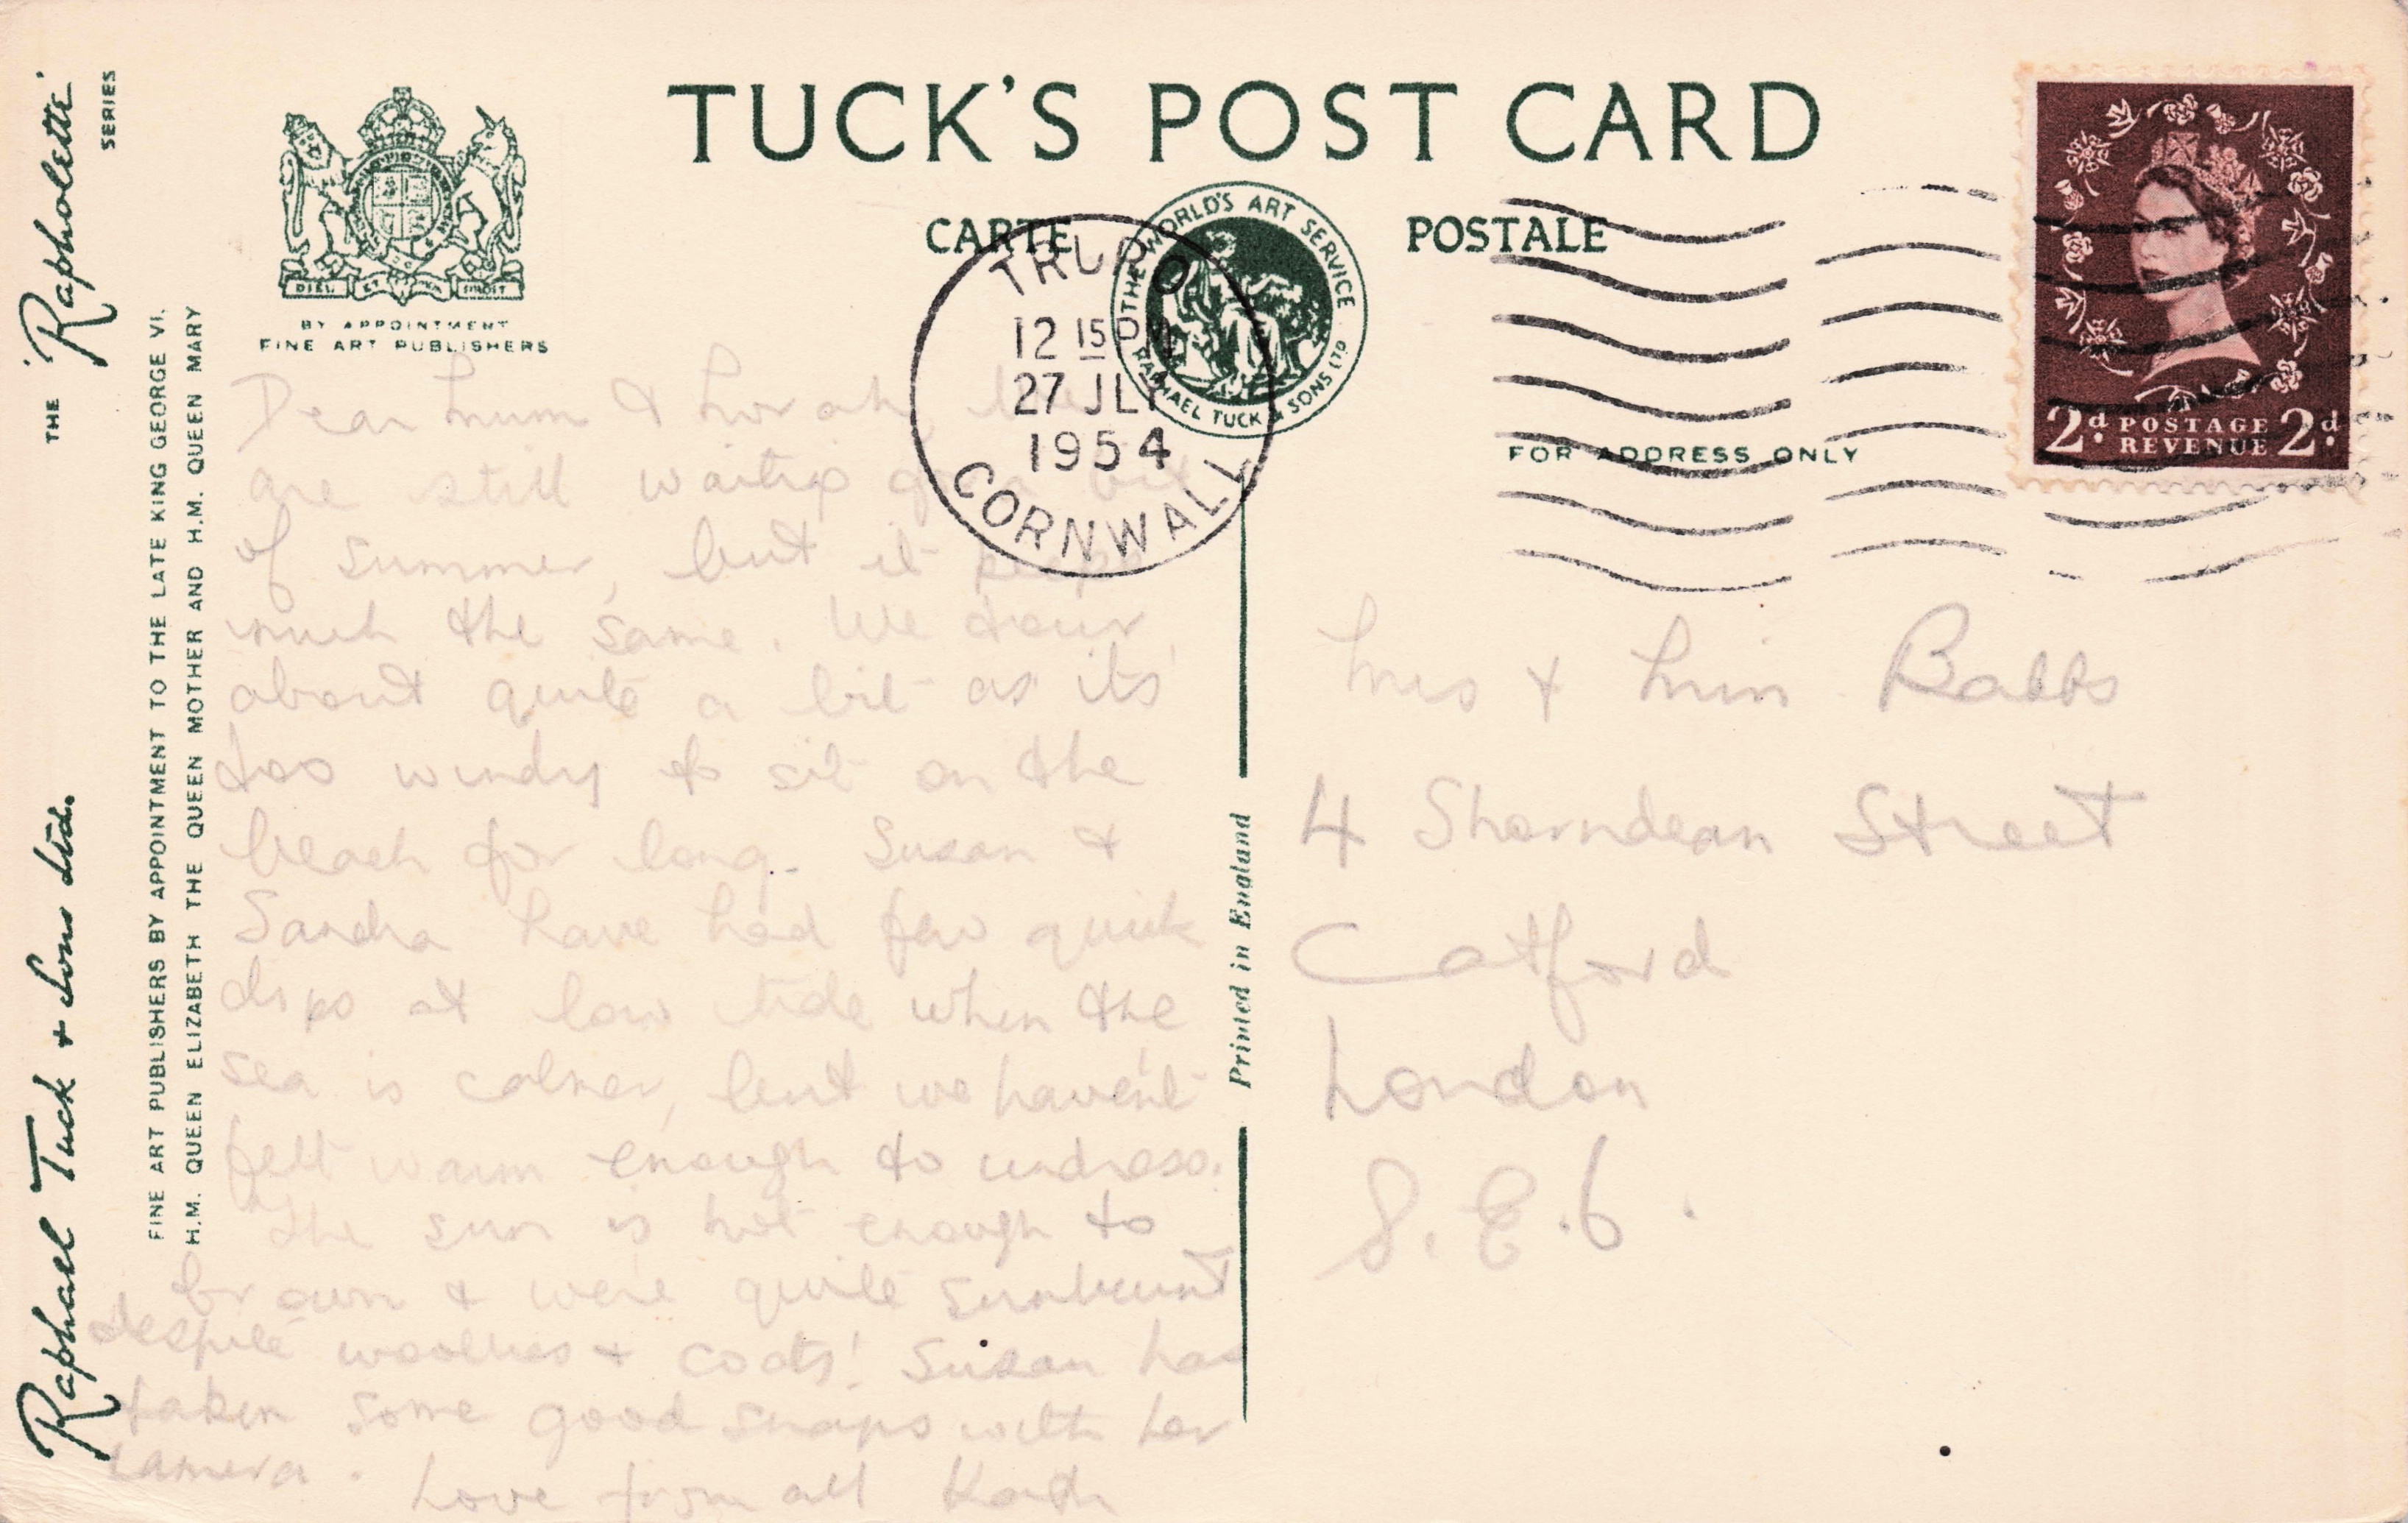 TUCK'S POST CARD
CARTE POSTALE
THE WORLD'S ART SERVICE
RAPHAEL TUCK & SONS LTD
DIEU ET MON DROIT
BY APPOINTMENT
FINE ART PUBLISHERS
TRURO
12 15 PM
27 JLY
1954
CORNWALL
2d. POSTAGE REVENUE 2d.
FOR ADDRESS ONLY
THE 'Rapholette' SERIES
Raphael Tuck & Sons Ltd.
FINE ART PUBLISHERS BY APPOINTMENT TO THE LATE KING GEORGE VI.
H.M. QUEEN ELIZABETH THE QUEEN MOTHER AND H.M. QUEEN MARY
Printed in England
Dear Mum & Norah, We
are still waiting for a bit
of summer, but it keeps
much the same. We tour
about quite a bit as its
too windy to sit on the
beach for long. Susan &
Sandra have had few quick
dips at low tide when the
sea is calmer, but we haven't
felt warm enough to undress.
The sun is hot enough to
brown & we're quite sunburnt
despite woollies & coats! Susan has
taken some good snaps with her
camera. Love from all Kath
Mrs & Miss Babbs
4 Shorndean Street
Catford
London
S.E.6.